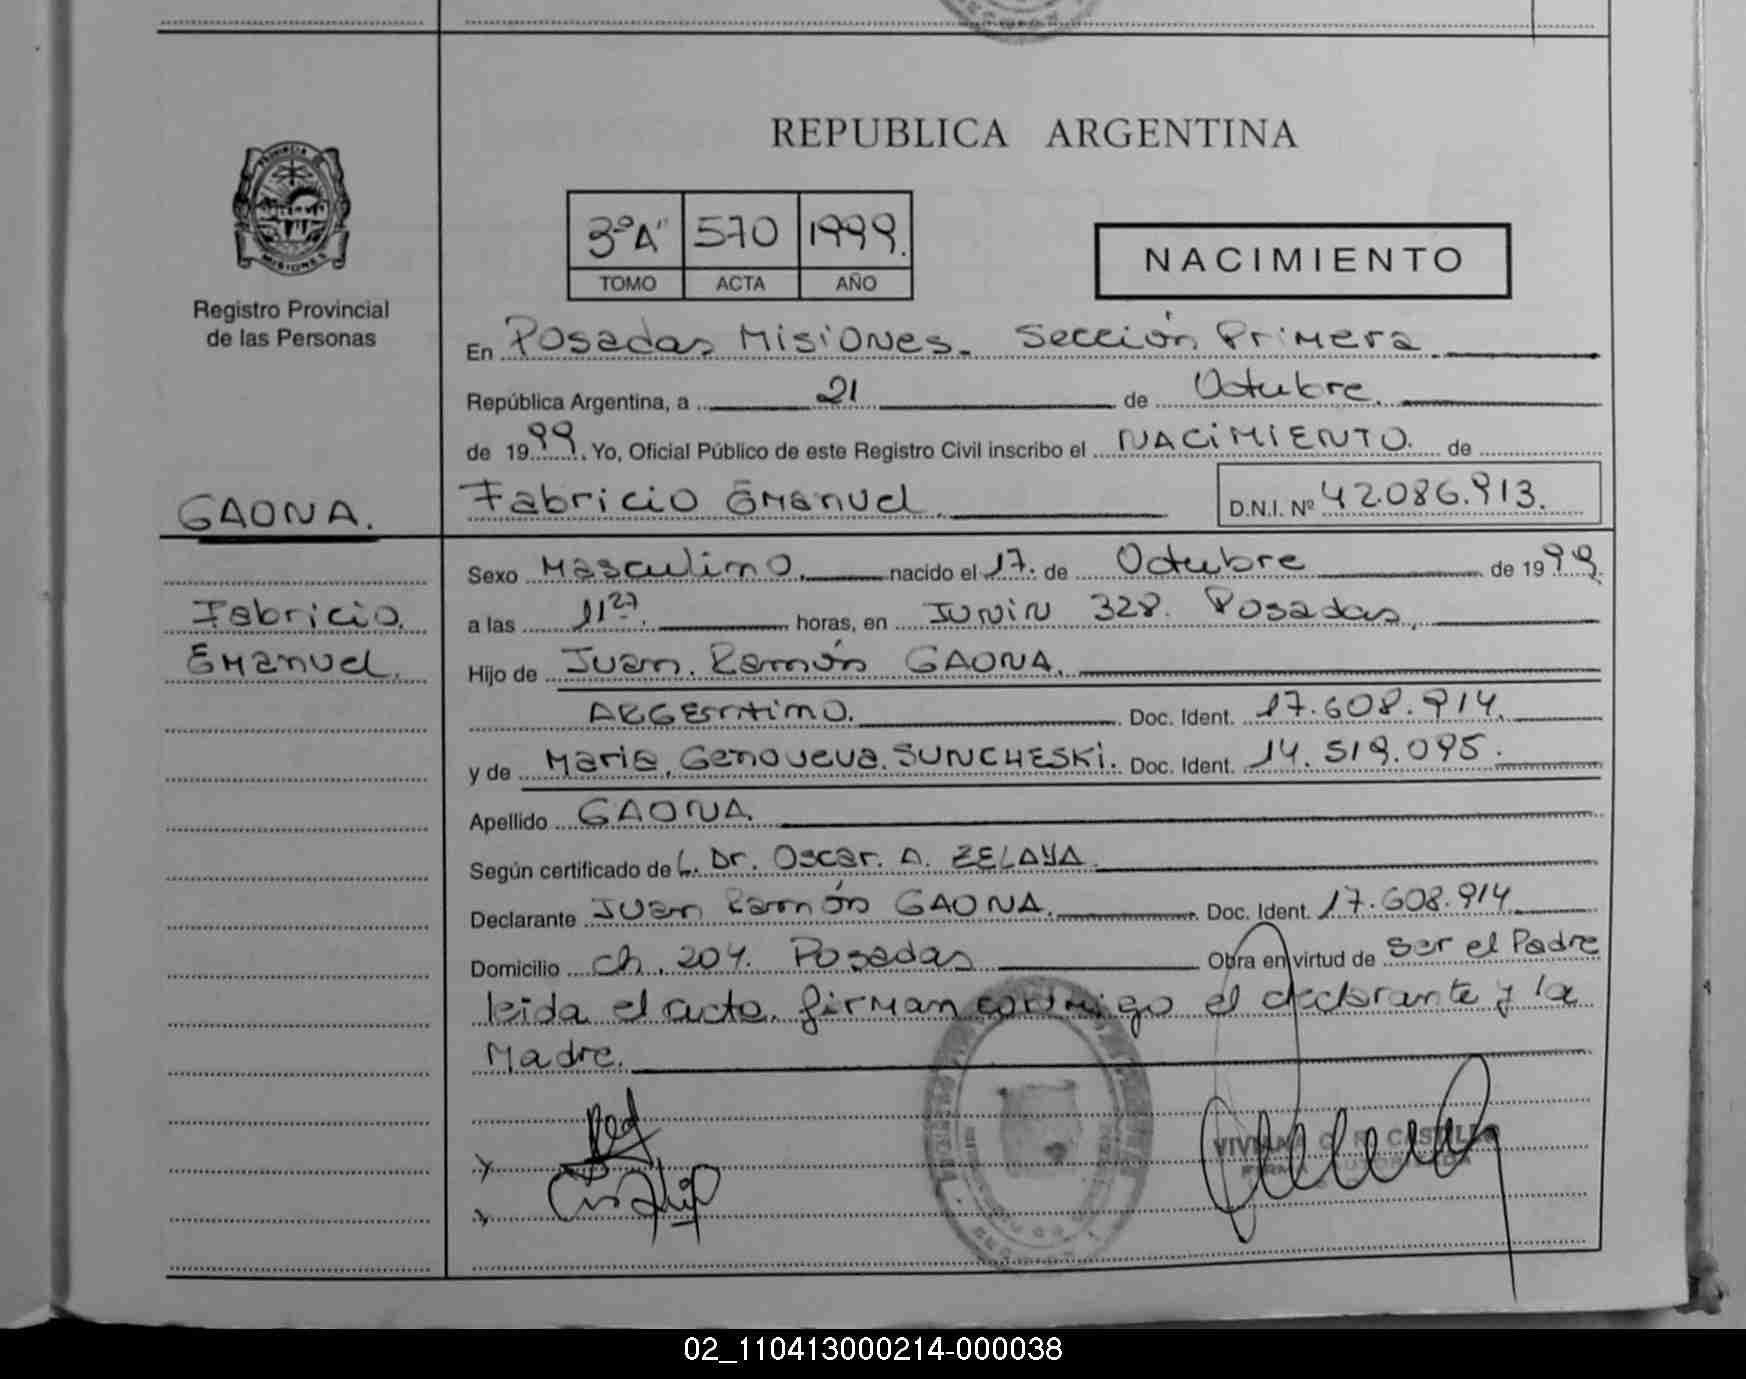 REPUBLICA ARGENTINA
PROVINCIA DE
MISIONES
Registro Provincial
de las Personas
3º"A" 570 1999.
TOMO ACTA AÑO
NACIMIENTO
En Posadas Misiones. Sección Primera
República Argentina, a 21 de Octubre.
de 1999. Yo, Oficial Público de este Registro Civil inscribo el NACIMIENTO. de
GAONA.
Fabricio Emanuel. D.N.I. Nº 42.086.913.
Sexo Masculino. nacido el 17. de Octubre de 1999.
Fabricio.
a las 11 27. horas, en JUNIN 328. Posadas,
Emanuel.
Hijo de Juan. Ramón GAONA.
ARGENtiNO. Doc. Ident. 17.608.914.
y de Maria. Genoveva. SUNCHESKi. Doc. Ident. 14.519.095.
Apellido GAONA.
Según certificado de L. Dr. Oscar. A. ZELAYA.
Declarante Juan Ramón GAONA. Doc. Ident. 17.608.914
Domicilio ch. 204. Posadas Obra en virtud de ser el Padre
leida el acta. firman conmigo el declarante y la
Madre.
VIVIANA CASTILLO
FIRMA AUTORIZADA
02_110413000214-000038